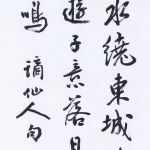 水繞東城
遊子意落日
鳴 謫仙人句